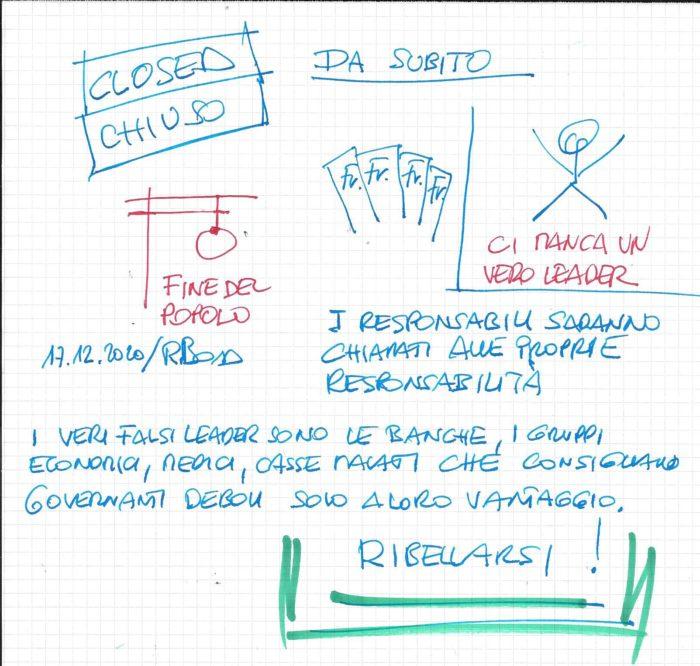 CLOSED
CHIUSO
DA SUBITO
Fr. Fr. Fr. Fr.
CI MANCA UN
VERO LEADER
FINE DEL
POPOLO
17.12.2020/RBOSS
I RESPONSABILI SARANNO
CHIAMATI ALLE PROPRIE
RESPONSABILITÀ
I VERI FALSI LEADER SONO LE BANCHE, I GRUPPI
ECONOMICI, MEDICI, CASSE MALATI CHE CONSIGLIANO
GOVERNANTI DEBOLI SOLO A LORO VANTAGGIO.
RIBELLARSI!